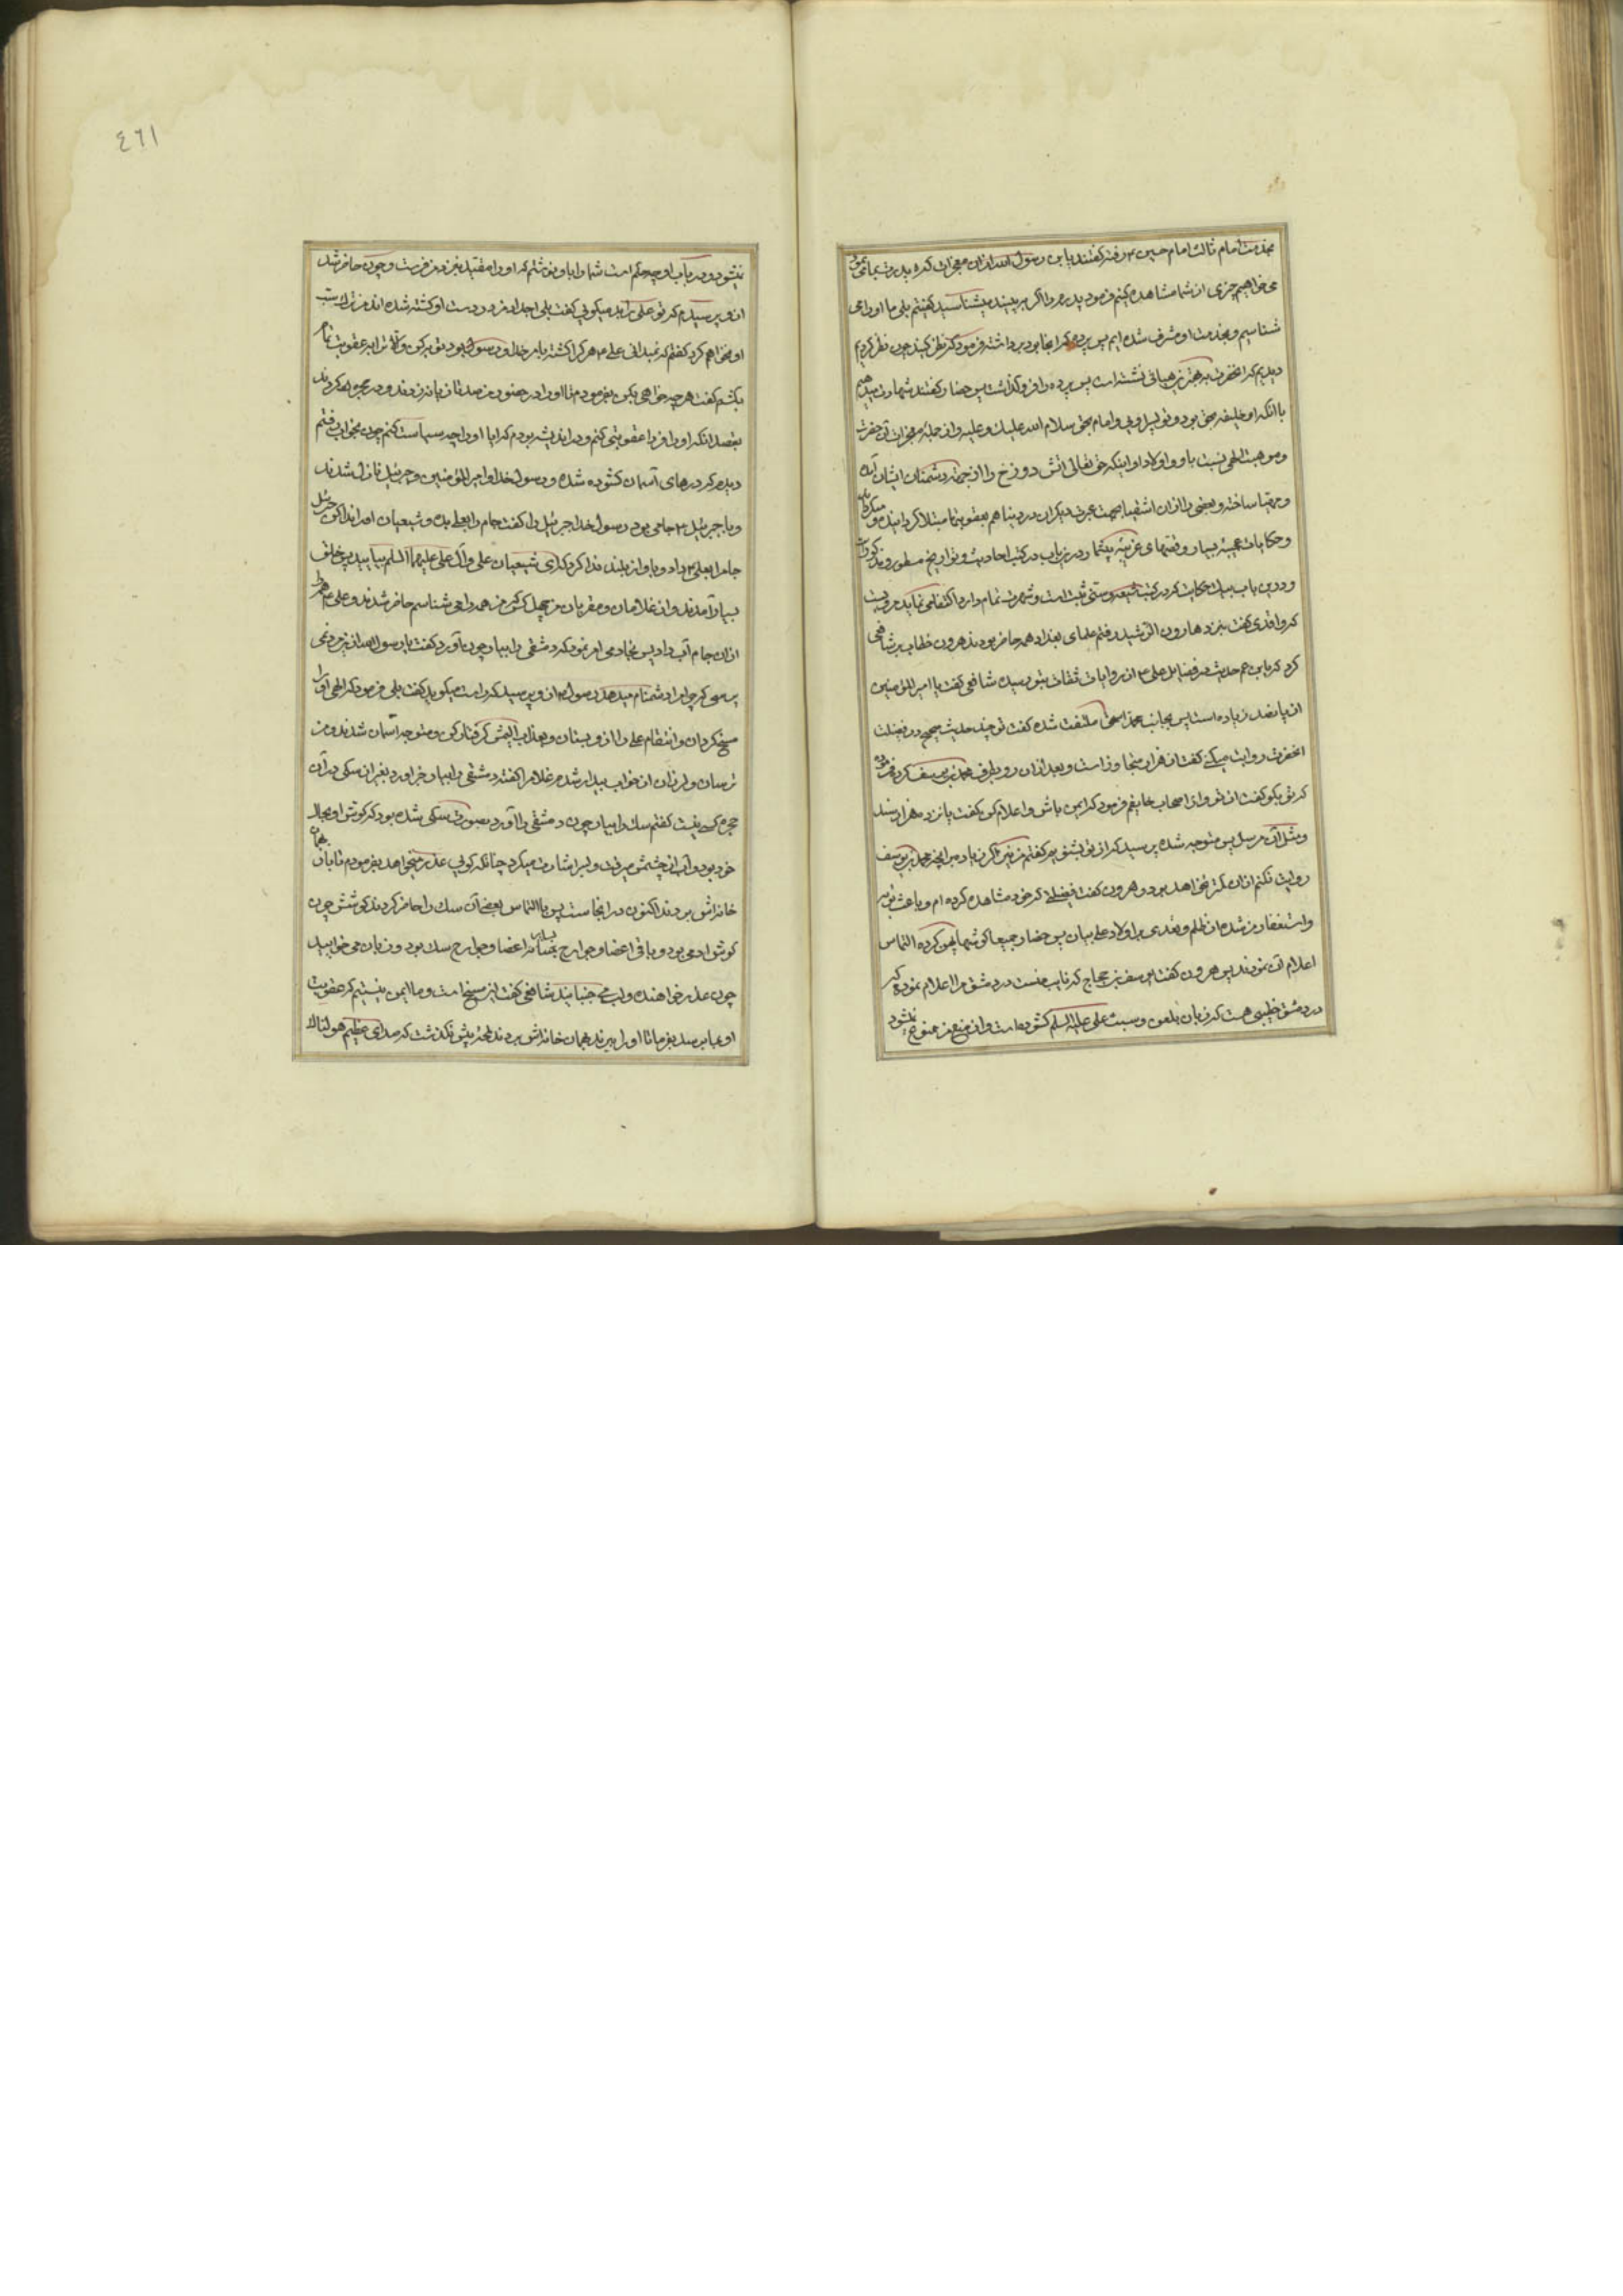 بخدمت امام ثالث امام حسین ع رفته گفتند یا بن رسول الله ازان معجزات که پدرت بما می نمود
می خواهیم چیزی از شما مشاهده کنیم فرمود پدرم را اگر ببینید میشناسید گفتیم بلی ما او را می
شناسیم و بخدمت او مشرف شده ایم پس پرده که انجا بود برداشته فرمود که نظر کنید چون نظر کردیم
دیدیم که انحضرت نشسته است پس پرده را فرو گذاشت پس حضار گفتند شهادت میدهیم
باانکه او خلیفه بحق بود و تو پسر اویی و امام بحق سلام الله علیک و علیه و از جمله معجزات آن حضرت
و موهبت الهی نسبت باو و اولاد او اینکه حق تعالی اتش دوزخ را از جهة دشمنان ایشان آماده
و مهیا ساخته و بعضی را ازان اشقیا بجهت عبرت دیگران در دنیا هم بعقوبتها مبتلا گردانیده
و حکایات عجیبه بسیار و قصهای غریبه بیشمار درین باب در کتب احادیث و تواریخ مسطور و مذکور است
و درین باب بیک حکایت که در کتب شیعه و سنی ثبت است و شهرت تمام دارد اکتفا می نماید مرویست
که واقدی گفت بنزد هارون الرشید رفتم علمای بغداد همه حاضر بودند هرون خطاب بر شافعی
کرد که یابن عم حدیث در فضایل علی ع از روایات ثقات بتو رسیده شافعی گفت یا امیر المؤمنین
از پانصد زیاده است پس بجانب محمد اسحق ملتفت شده گفت تو چند حدیث صحیح در فضیلت
انحضرت روایت میکنی گفت از هزار متجاوز است و بعد ازان رو بطرف محمد بن یوسف کرد فرمود
که تو بگو گفت از تو و از اصحاب خایفم فرمود که ایمن باش و اعلام کن بگفت پانزده هزار مسند
و مثل آن مرسل پس متوجه شده پرسید که از تو بشنویم گفتم من نیز اگر زیاد مبر انچه محمد بن یوسف
روایت نکنم ازان کمتر نخواهد بود هرون گفت فضیلتی که خود مشاهده کرده ام و باعث توبه
و استغفار من شده از ظلم و تعدی بر اولاد علی بیان پس حضار جمیعا گوشها پهن کرده التماس
اعلام آن نمودند پس هرون گفت یوسف بن حجاج که نایب منست در دمشق مرا اعلام نموده که
در دمشق خطیبی هست که زبان بلعن و سبّ علی علیه السلم گشوده است و از منع من ممنوع نمیشود
نمیشود و در باب او چه حکم است شما را باو نوشتم که او را مقید بنزد من فرست و چون حاضر شد
ازو پرسیدم که تو علی را بد میگویی گفت بلی اجداد من در دست او کشته شده اند من ترک سبّ
او نخواهم کرد گفتم که نمیدانی علی ع هر که را کشته بامر خدا و رسول بود توبه کن والا ترا به عقوبت تمام
بکشم گفت هر چه خواهی بکن بفرمودم تا او را در حضور من صد تازیانه زدند و در حجره کردند
بقصد انکه او را فردا عقوبتی کنم و در اندیشه بودم که ایا او را چه سیاست کنم چون بخواب رفتم
دیدم که درهای آسمان گشوده شده و رسول خدا و امیر المؤمنین و جبرئیل نازل شدند
و با جبرئیل ع جامی بود رسول خدا جبرئیل را گفت جام را بعلی بده و شیعیان او را ندا کن جبرئیل
جام را بعلی ع داد و باواز بلند ندا کرد که ای شیعیان علی و آل علی علیهم السلم بیایید پس خلق
بسیار آمدند و از غلامان و مقربان من چهل کس که من همه را می شناسم حاضر شدند و علی ع همه را
ازان جام آب داد پس نجادمی امر نمود که دمشقی را بیار چون آورد گفت یا رسول الله ازین مرد نمی
پرسی که چرا مرا دشنام میدهد رسول ع ازو پرسید که راست میگوید گفت بلی فرمود که الهی او را
مسخ گردان و انتقام علی را ازو بستان و بعذاب الیمش گرفتار کن و متوجه آسمان شدند و من
ترسان و لرزان از خواب بیدار شدم غلام را گفتم دمشقی را بیار خبر اورد بغیر از سگی در آن
حجره کسی نیست گفتم سگ را بیار چون دمشقی را آورد بصورت سگی شده بود که گوش او بحال
خود بود و آب از چشمش میرفت و بسر اشارت میکرد چنانکه گویی عذر میخواهد بفرمودم تا بان بهمان
خانه اش بردند اکنون در انجاست پس بالتماس بعضی آن سگ را حاضر کردند گوشش چون
گوش ادمی بود و باقی اعضا و جوارح بمانند اعضا و جوارح سگ بود و زبان می خوایید
چون عذر خواهنده و لب می جنبانید شافعی گفت این مسخ است و ما ایمن نیستیم که عقوبت
او بما برسد بفرما تا او را ببرند بهمان خانه اش بردند لحظه بیش نگذشت که صدای عظیم هولناک
٤٦١